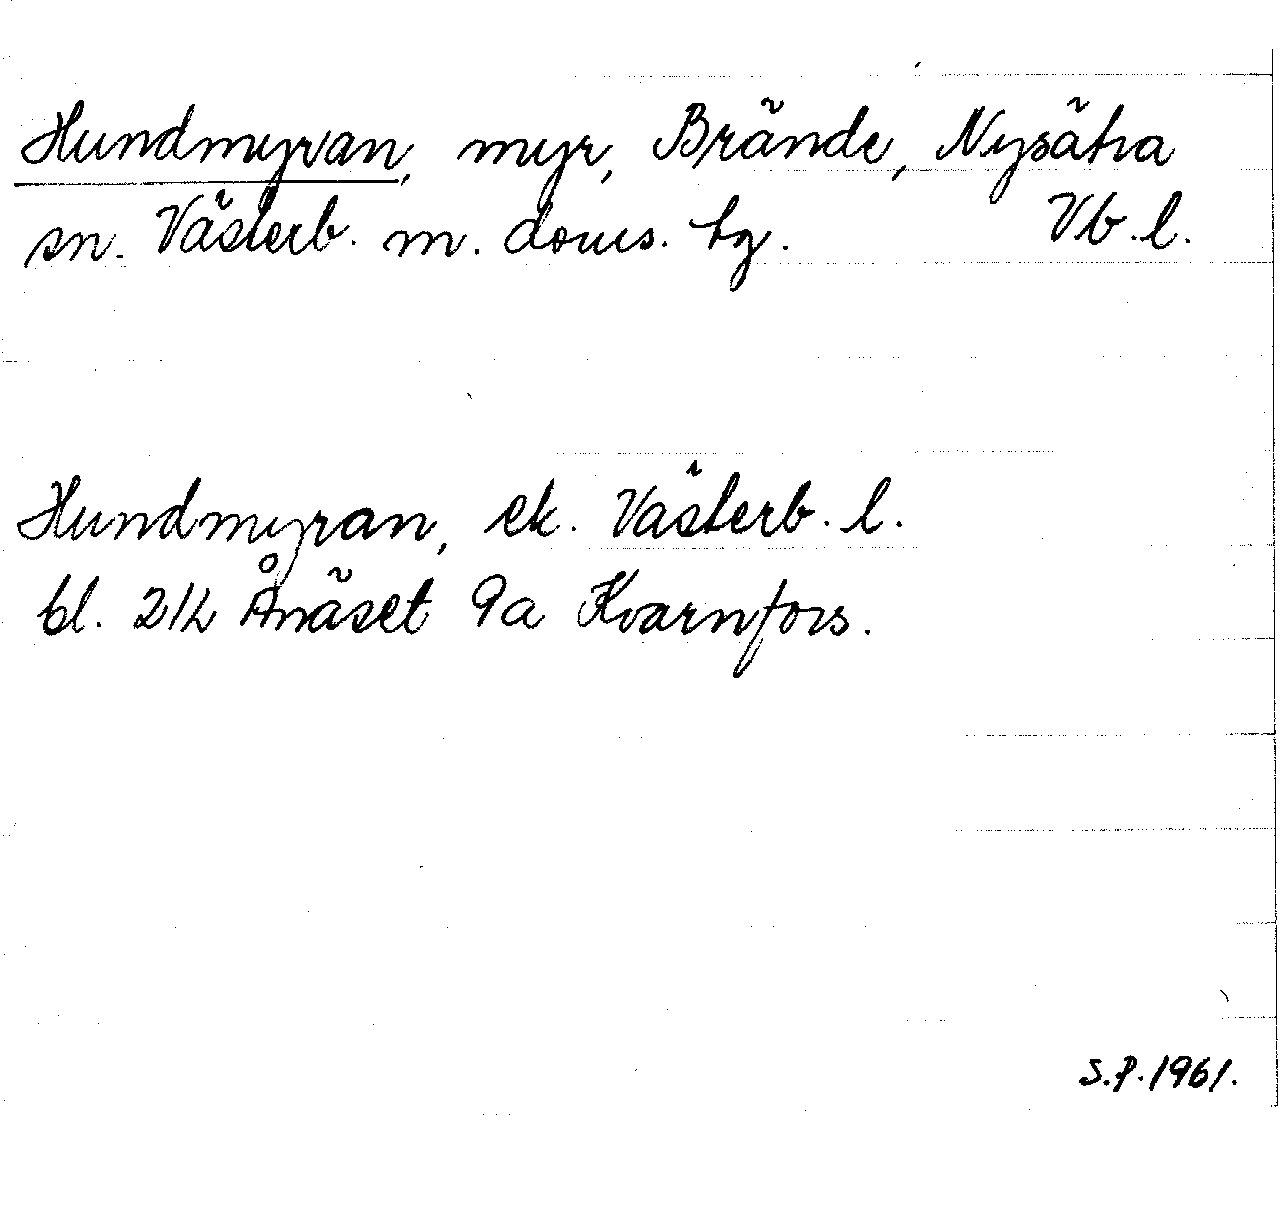 Hundmyran, myr, Brände, Nysätra
sn. Västerb. m. doms. hg. Vb. l.
Hundmyran, ek. Västerb. l.
bl. 21L Ånäset 9a Kvarnfors.
S.P. 1961.